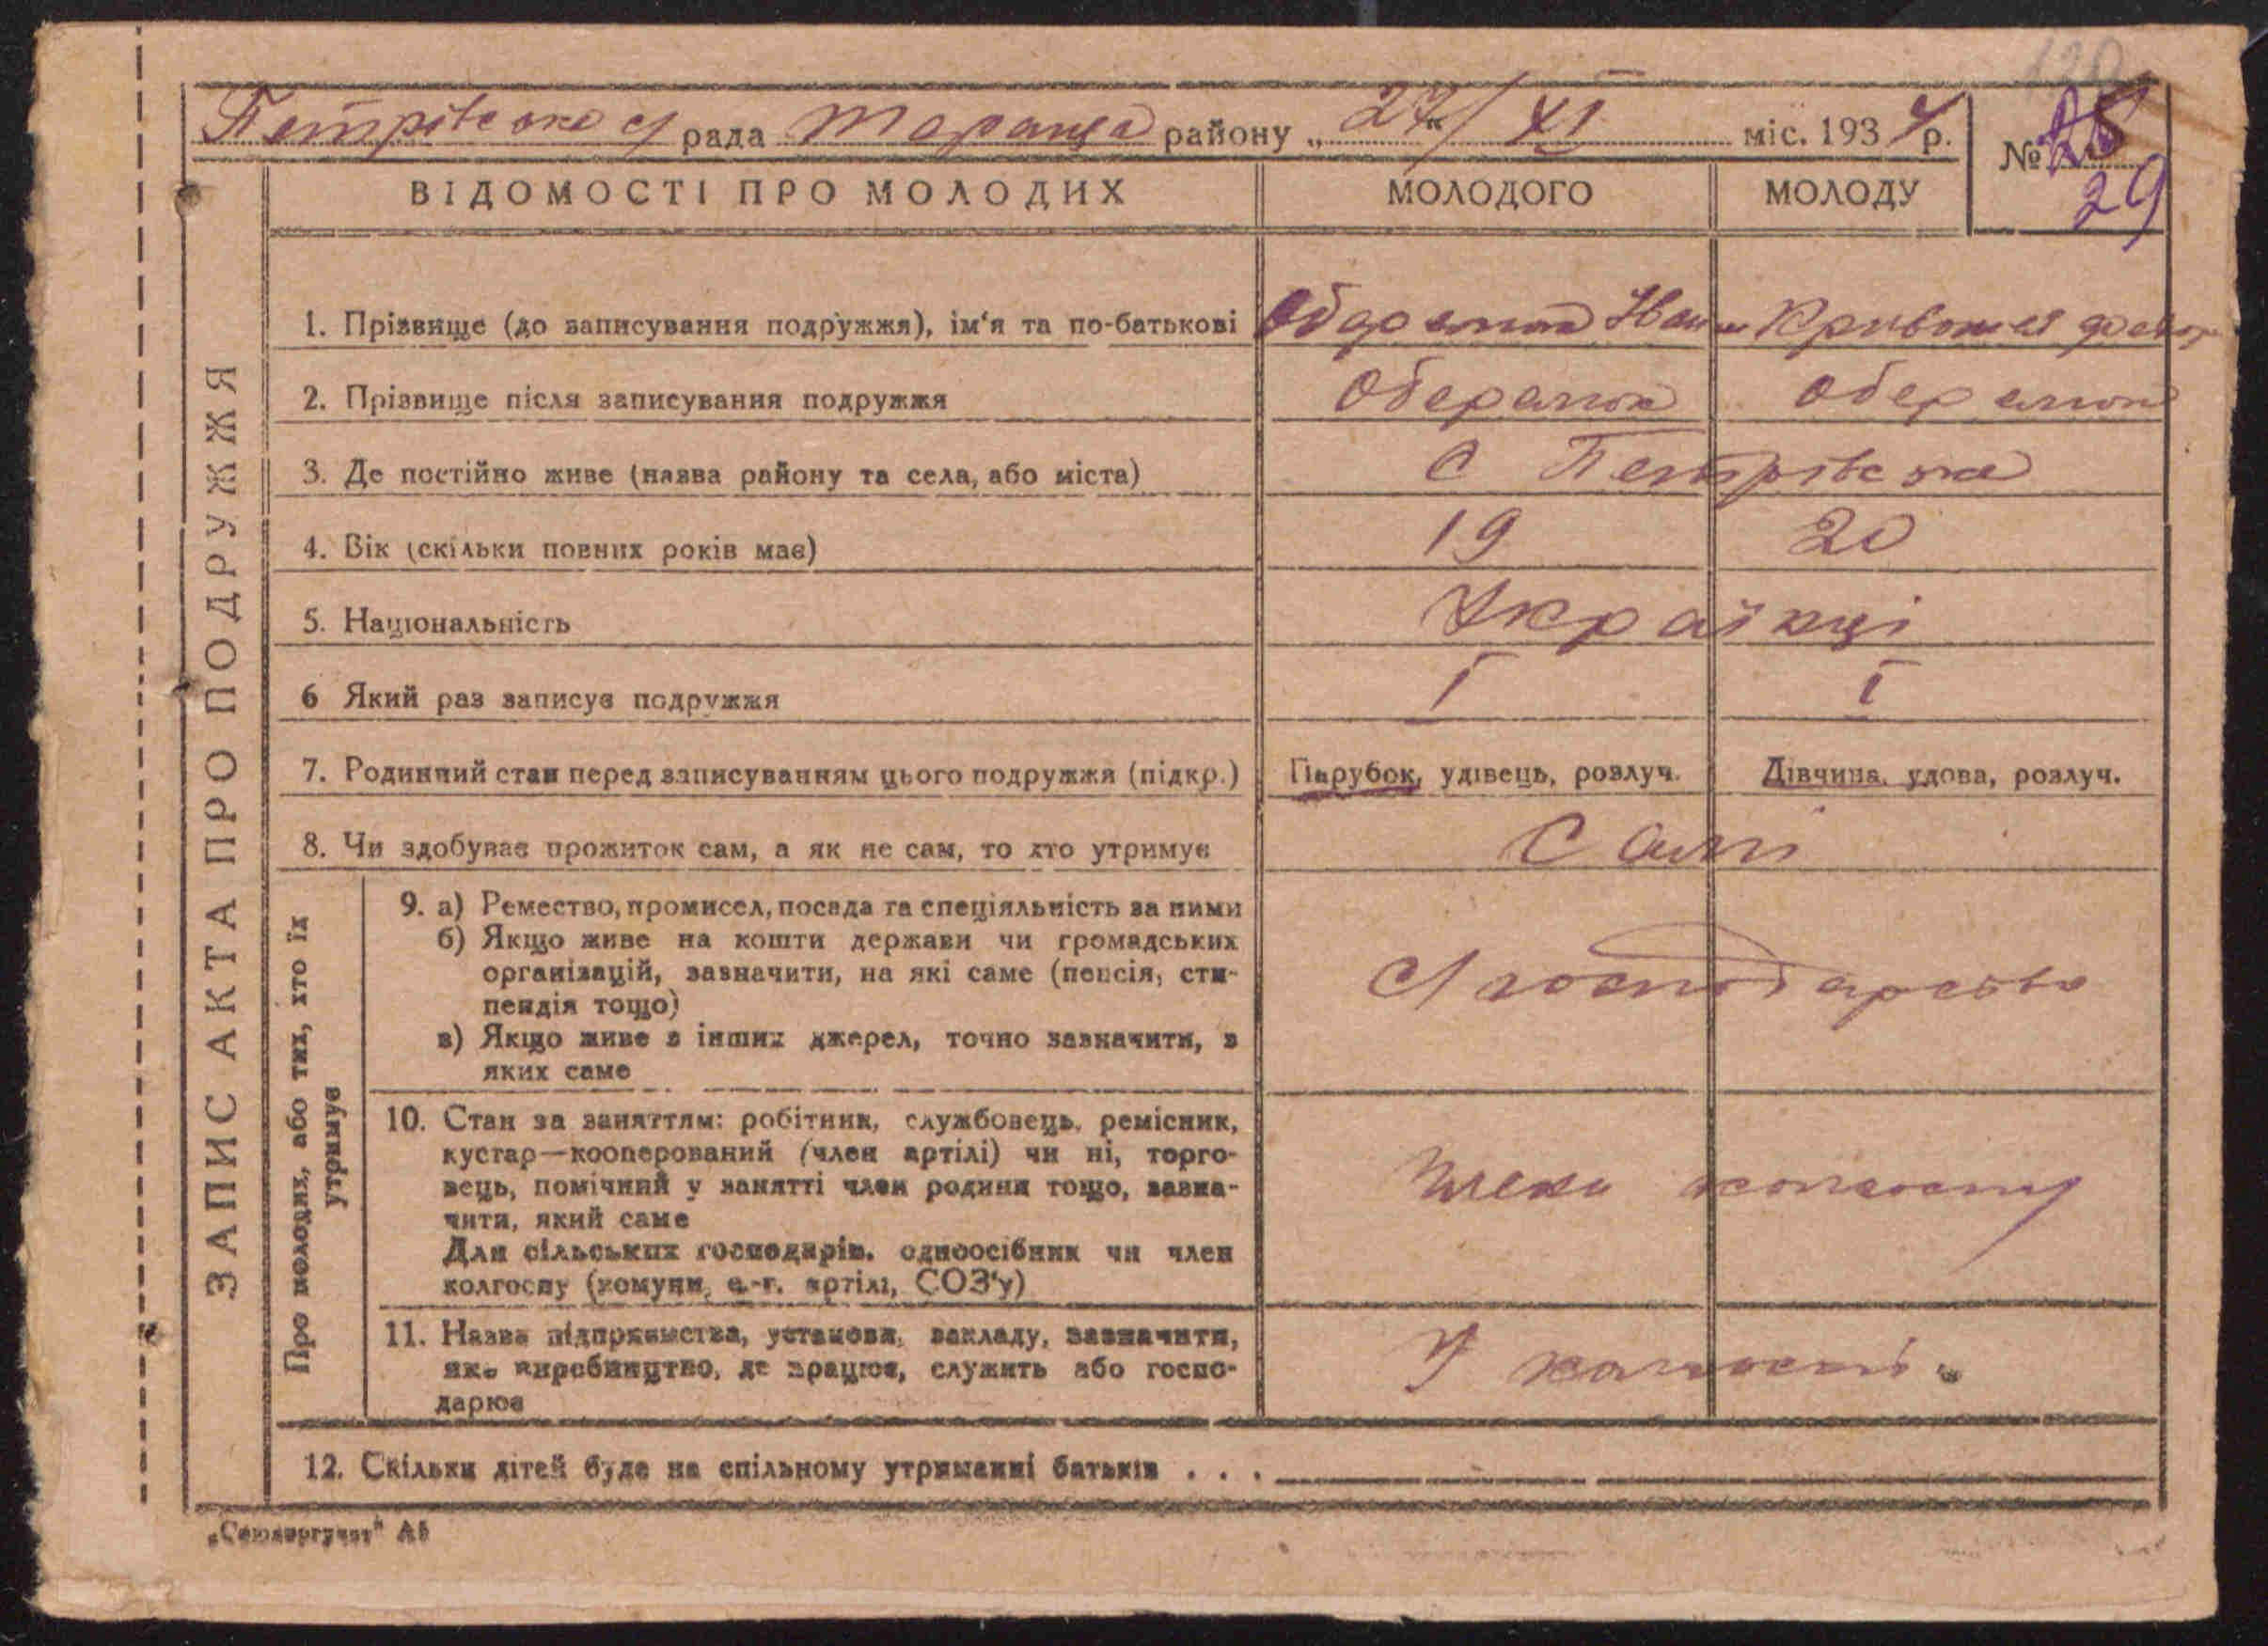 Петрівська с/ рада Тараща району „27“ XI міс. 1934 р.
№ 29
ВІДОМОСТІ ПРО МОЛОДИХ МОЛОДОГО МОЛОДУ
ЗАПИС АКТА ПРО ПОДРУЖЖЯ
1. Прізвище (до записування подружжя), ім‘я та по-батькові Іван
2. Прізвище після записування подружжя Оберемок Оберемок
3. Де постійно живе (назва району та села, або міста) С Петрівська
4. Вік (скільки повних років має) 19 20
5. Національність Українці
6 Який раз записує подружжя I I
7. Родинний стан перед записуванням цього подружжя (підкр.) Парубок, удівець, розлуч. Дівчина, удова, розлуч.
8. Чи здобуває прожиток сам, а як не сам, то хто утримує Самі
Про молодих, або тих, хто їх утримує
9. а) Ремество, промисел, посада та спеціяльність за ними
б) Якщо живе на кошти держави чи громадських
організацій, зазначити, на які саме (пенсія, сти-
пендія тощо)
в) Якщо живе з інших джерел, точно зазначити, з
яких саме
С/господарство
10. Стан за заняттям: робітник, службовець, ремісник,
кустар—кооперований (член артілі) чи ні, торго-
вець, помічний у занятті член родини тощо, зазна-
чити, який саме
Для сільських господарів, одноосібник чи член
колгоспу (комуни, с.-г. артілі, СОЗ‘у)
Члени колгоспу
11. Назва підприємства, установи, закладу, зазначити,
яке виробництво, де працює, служить або госпо-
дарює
У колгоспі
12. Скільки дітей буде на спільному утриманні батьків . . .